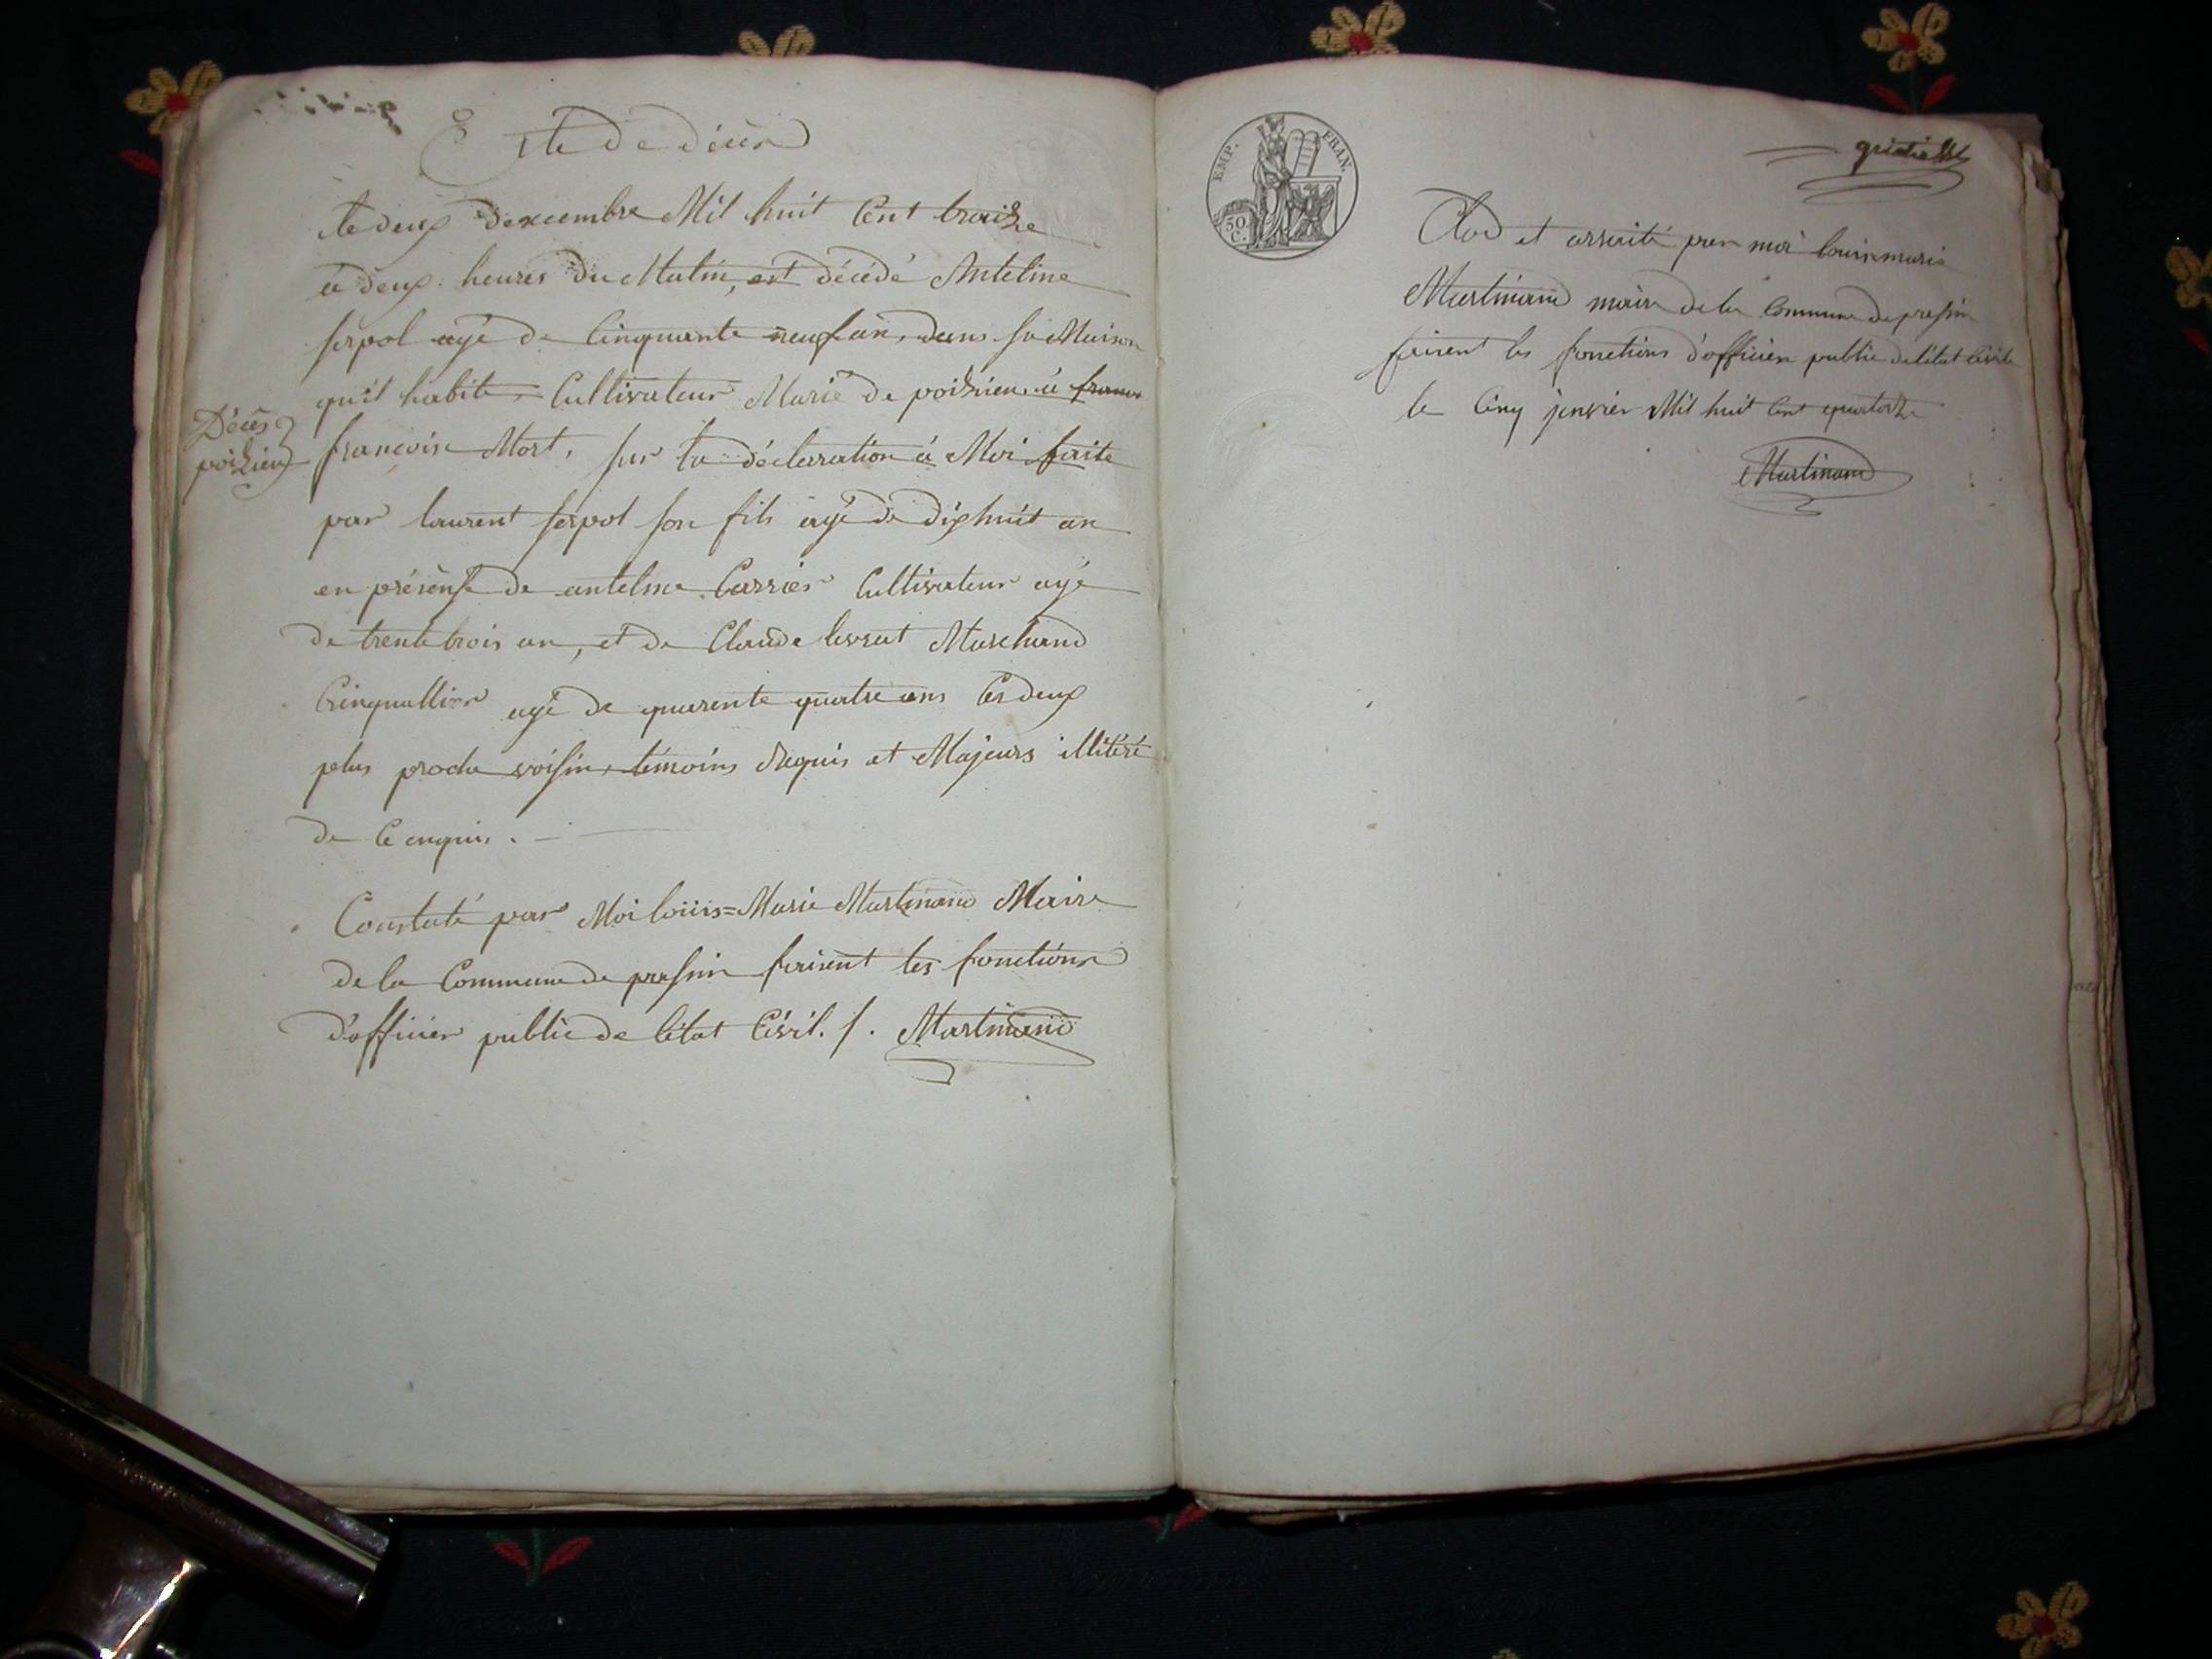 Acte De décès
le deux dexcembre Mil huit Cent traize
à deux heures du Matin, est décédé Antelme
serpol agé de Cinquante neuf an, dans sa Maison
qu'il habite, Cultivateur Marié de poizieu à
Décès
poizieu
francoise Mort, sur la déclaration à Moi faite
par laurent serpol son fils agé de dixhuit an
en présense de antelme Carrier Cultivateur agé
de trente trois an, et de Claude levrat Marchand
Crinquallier agé de quarente quatre ans les deux
plus proche voisin, témoins Requis et Majeurs illitéré
de Ce enquis.
Constaté par Moi loüis=Marie Martinand Maire
de la Commune de prasin faisent les fonctions
d'officier public de létat Civil. /. Martinand
EMP. FRAN.
50 C.
Clos et arraité par moi louis marie
Martinand maire de la Commune de prasin
faisent les fonctions d'officier public de létat Civile
le Cinq janvier Mil huit Cent quatorze
Martinand